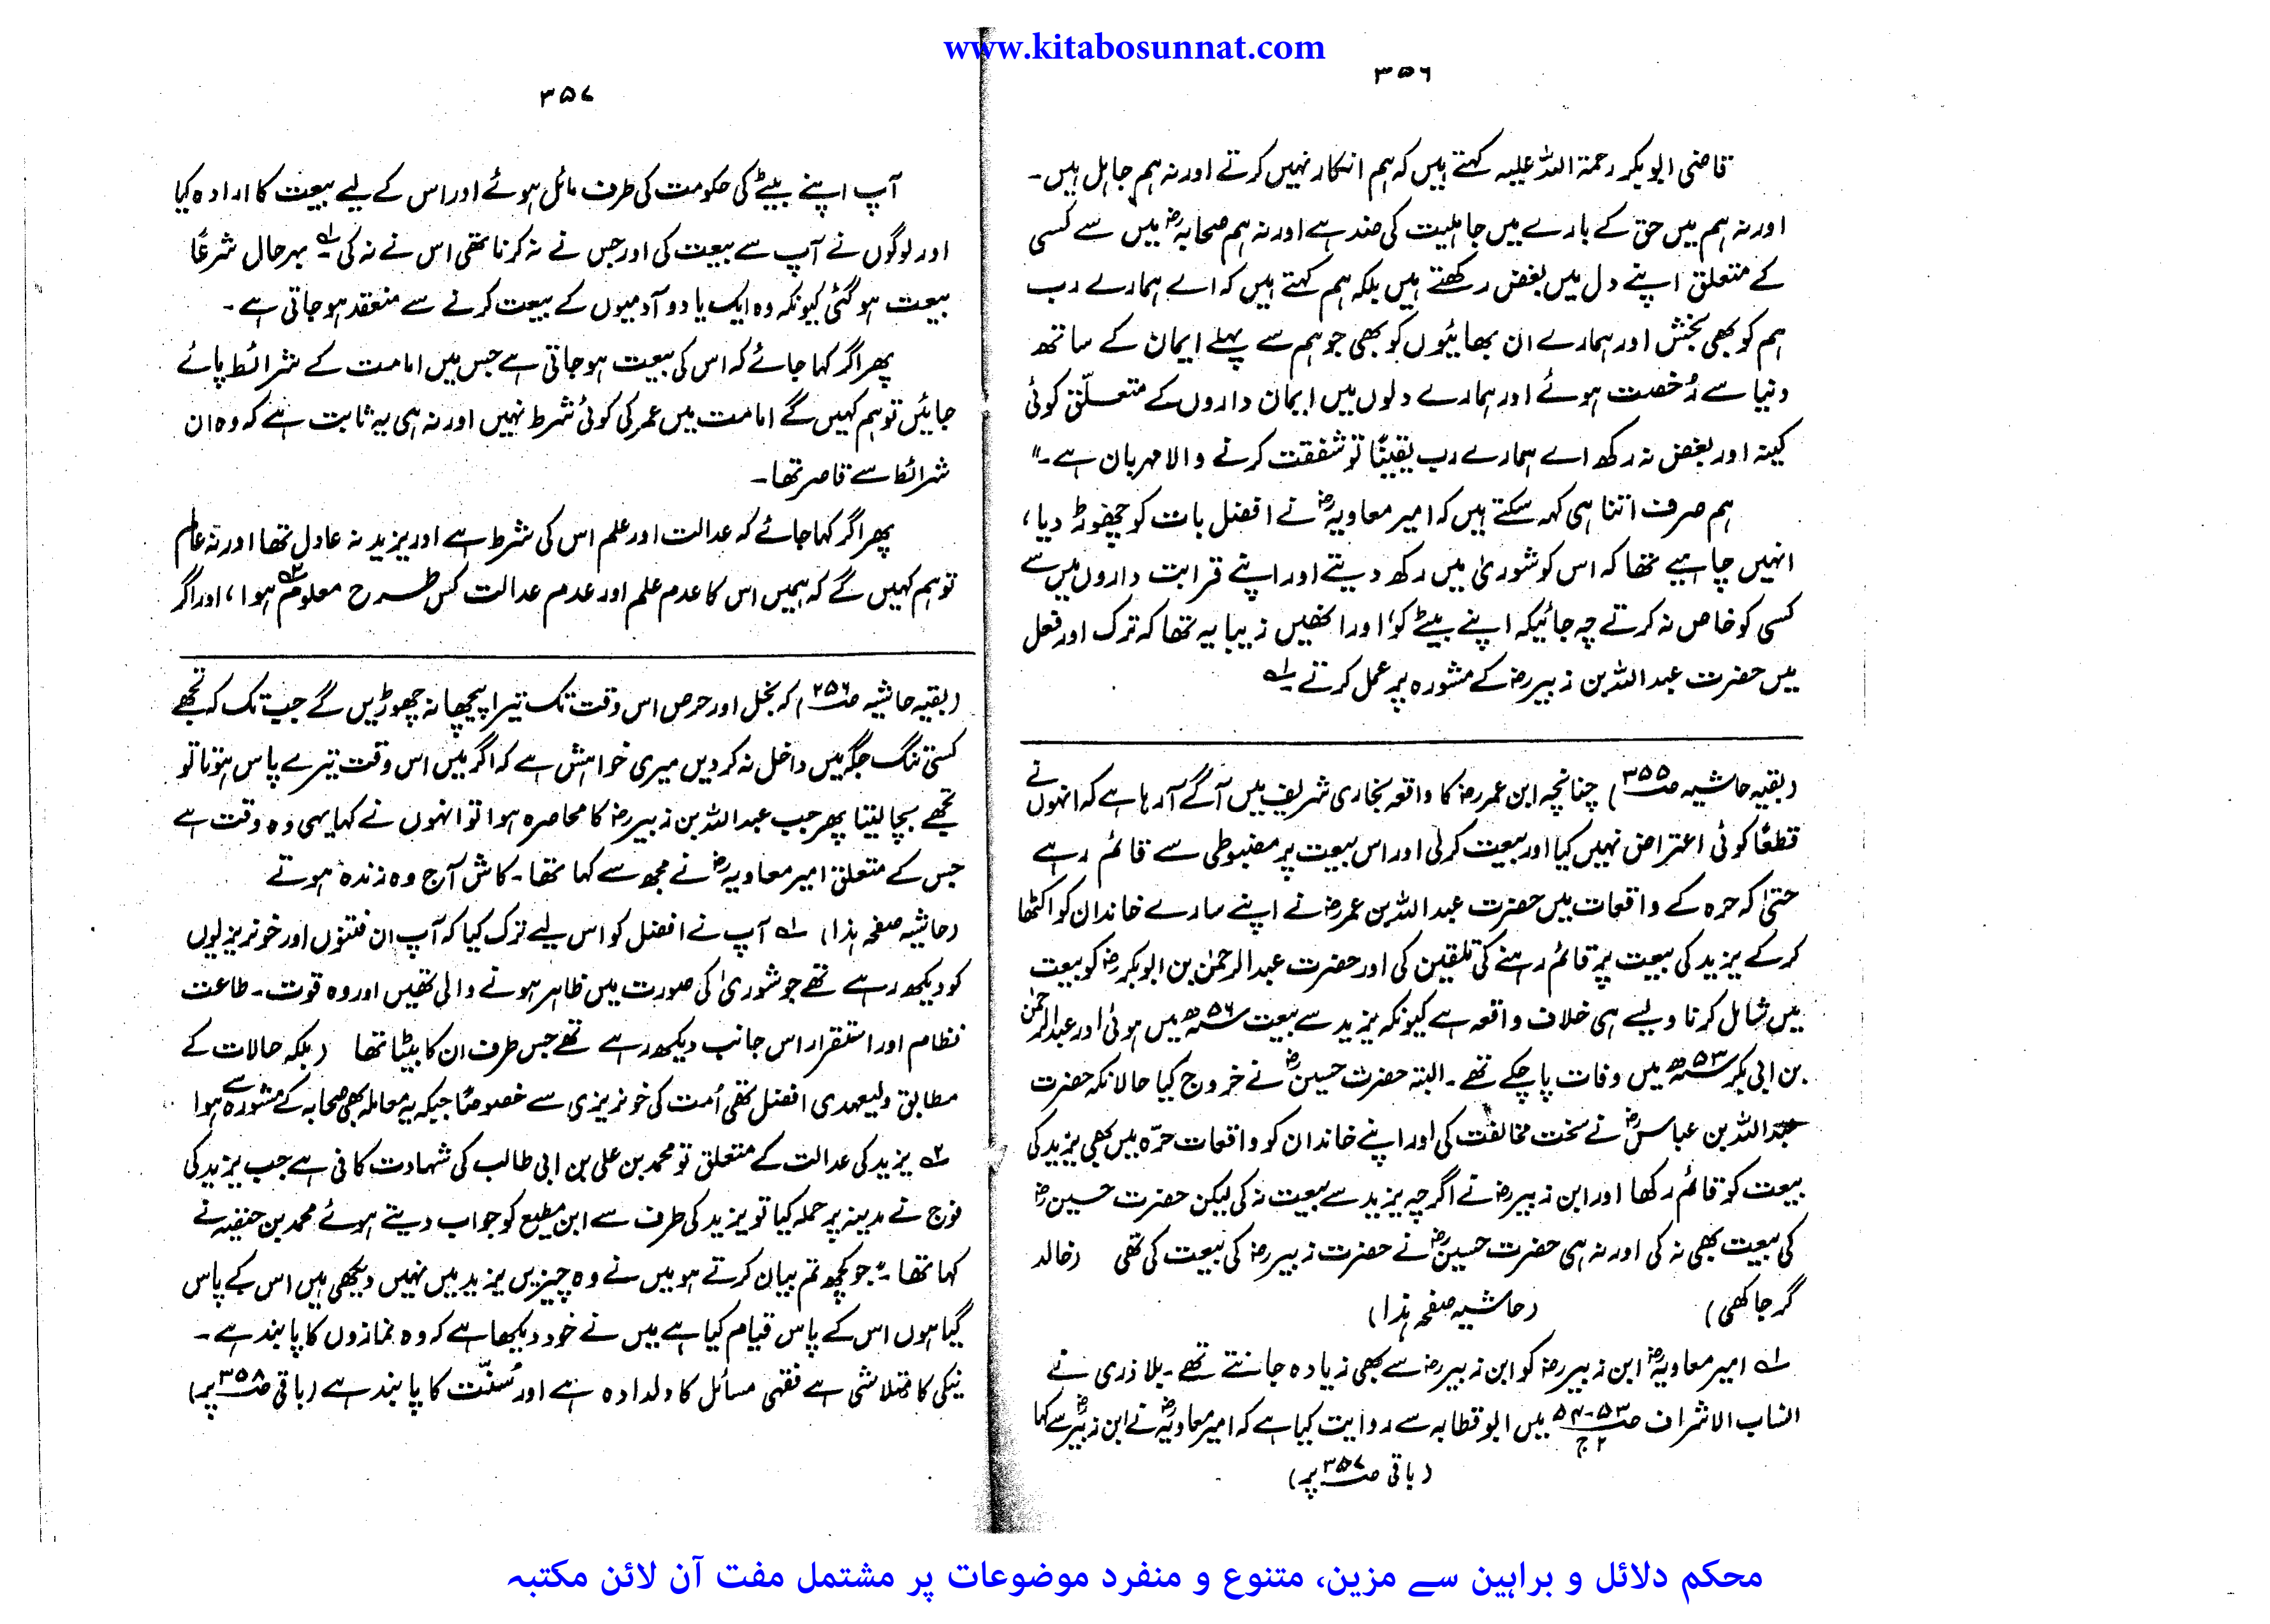 www.kitabosunnat.com
۳۵۶
قاضی ابوبکر رحمۃ اللہ علیہ کہتے ہیں کہ ہم انکار نہیں کرتے اور نہ ہم جاہل ہیں۔
اور نہ ہم میں حق کے بارے میں جاہلیت کی ضد ہے اور نہ ہم صحابہؓ میں سے کسی
کے متعلق اپنے دل میں بغض رکھتے ہیں بلکہ ہم کہتے ہیں کہ اے ہمارے رب
ہم کو بھی بخش اور ہمارے ان بھائیوں کو بھی جو ہم سے پہلے ایمان کے ساتھ
دنیا سے رُخصت ہوئے اور ہمارے دلوں میں ایمان داروں کے متعلّق کوئی
کینہ اور بغض نہ رکھ اے ہمارے رب یقینًا تو شفقت کرنے والا مہربان ہے۔"
ہم صرف اتنا ہی کہہ سکتے ہیں کہ امیر معاویہؓ نے افضل بات کو چھوڑ دیا،
انہیں چاہیے تھا کہ اس کو شوریٰ میں رکھ دیتے اور اپنے قرابت داروں میں سے
کسی کو خاص نہ کرتے چہ جائیکہ اپنے بیٹے کو، اور انھیں زیبا یہ تھا کہ ترک اور فعل
میں حضرت عبداللہ بن زبیرؓ کے مشورہ پر عمل کرتے ۱؎
(بقیہ حاشیہ صـ۳۵۵) چنانچہ ابن عمرؓ کا واقعہ بخاری شریف میں آگے آ رہا ہے کہ انہوں نے
قطعًا کوئی اعتراض نہیں کیا اور بیعت کر لی اور اس بیعت پر مضبوطی سے قائم رہے
حتیٰ کہ حرہ کے واقعات میں حضرت عبداللہ بن عمرؓ نے اپنے سارے خاندان کو اکٹھا
کر کے یزید کی بیعت پر قائم رہنے کی تلقین کی اور حضرت عبدالرحمٰن بن ابوبکرؓ کو بیعت
میں شامل کرنا ویسے ہی خلاف واقعہ ہے کیونکہ یزید سے بیعت ۵۶ھ میں ہوئی اور عبدالرحمٰن
بن ابی بکر ۵۳ھ میں وفات پا چکے تھے۔ البتہ حضرت حسینؓ نے خروج کیا حالانکہ حضرت
عبداللہ بن عباسؓ نے سخت مخالفت کی اور اپنے خاندان کو واقعات حرّہ میں بھی یزید کی
بیعت کو قائم رکھا اور ابن زبیرؓ نے اگرچہ یزید سے بیعت نہ کی لیکن حضرت حسینؓ
کی بیعت بھی نہ کی اور نہ ہی حضرت حسینؓ نے حضرت زبیرؓ کی بیعت کی تھی (خالد
گرجاکھی) (حاشیہ صفحہ ہذا)
۱؎ امیر معاویہؓ ابن زبیرؓ کو ابن زبیرؓ سے بھی زیادہ جانتے تھے۔ بلاذری نے
انساب الاشراف صـ۵۳-۵۴ ج۲ میں ابوقطابہ سے روایت کیا ہے کہ امیر معاویہؓ نے ابن زبیرؓ سے کہا
(باقی صـ۳۵۷ پر)
۳۵۷
آپ اپنے بیٹے کی حکومت کی طرف مائل ہوئے اور اس کے لیے بیعت کا ارادہ کیا
اور لوگوں نے آپ سے بیعت کی اور جس نے نہ کرنا تھی اس نے نہ کی ۱؎ بہرحال شرعًا
بیعت ہو گئی کیونکہ وہ ایک یا دو آدمیوں کے بیعت کرنے سے منعقد ہو جاتی ہے۔
پھر اگر کہا جائے کہ اس کی بیعت ہو جاتی ہے جس میں امامت کے شرائط پائے
جائیں تو ہم کہیں گے امامت میں عمر کی کوئی شرط نہیں اور نہ ہی یہ ثابت ہے کہ وہ ان
شرائط سے قاصر تھا۔
پھر اگر کہا جائے کہ عدالت اور علم اس کی شرط ہے اور یزید نہ عادل تھا اور نہ عالم
تو ہم کہیں گے کہ ہمیں اس کا عدم علم اور عدم عدالت کس طرح معلوم ۲؎ ہوا، اور اگر
(بقیہ حاشیہ صـ۲۵۶) کہ بخل اور حرص اس وقت تک تیرا پیچھا نہ چھوڑیں گے جب تک کہ تجھے
کسی تنگ جگہ میں داخل نہ کر دیں میری خواہش ہے کہ اگر میں اس وقت تیرے پاس ہوتا تو
تجھے بچا لیتا پھر جب عبداللہ بن زبیرؓ کا محاصرہ ہوا تو انہوں نے کہا یہی وہ وقت ہے
جس کے متعلق امیر معاویہؓ نے مجھ سے کہا تھا۔ کاش آج وہ زندہ ہوتے
(حاشیہ صفحہ ہذا) ۱؎ آپ نے افضل کو اس لیے ترک کیا کہ آپ ان فتنوں اور خونریزیوں
کو دیکھ رہے تھے جو شوریٰ کی صورت میں ظاہر ہونے والی تھیں اور وہ قوت۔ طاعت
نظام اور استقرار اس جانب دیکھ رہے تھے جس طرف ان کا بیٹا تھا (بلکہ حالات کے
مطابق ولیعہدی افضل تھی اُمت کی خونریزی سے خصوصًا جبکہ یہ معاملہ بھی صحابہ کے مشورہ سے ہوا
۲؎ یزید کی عدالت کے متعلق تو محمد بن علی بن ابی طالب کی شہادت کافی ہے جب یزید کی
فوج نے مدینہ پر حملہ کیا تو یزید کی طرف سے ابن مطیع کو جواب دیتے ہوئے محمد بن حنفیہ نے
کہا تھا۔ "جو کچھ تم بیان کرتے ہو میں نے وہ چیزیں یزید میں نہیں دیکھی ہیں اس کے پاس
گیا ہوں اس کے پاس قیام کیا ہے میں نے خود دیکھا ہے کہ وہ نمازوں کا پابند ہے۔
نیکی کا متلاشی ہے فقہی مسائل کا دلدادہ ہے اور سُنّت کا پابند ہے (باقی صـ۳۵۸ پر)
محکم دلائل و براہین سے مزین، متنوع و منفرد موضوعات پر مشتمل مفت آن لائن مکتبہ